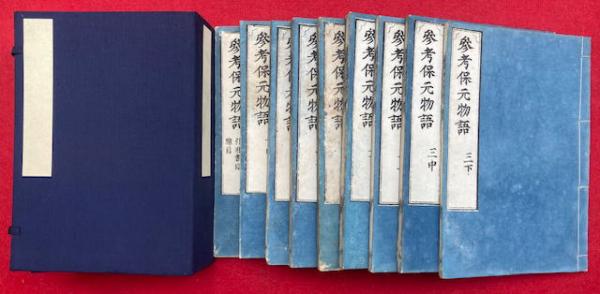 參考保元物語 三下
參考保元物語 三中
參考保元物語
參考保元物語
參考保元物語
參考保元物語
參考保元物語
參考保元物語
參考保元物語